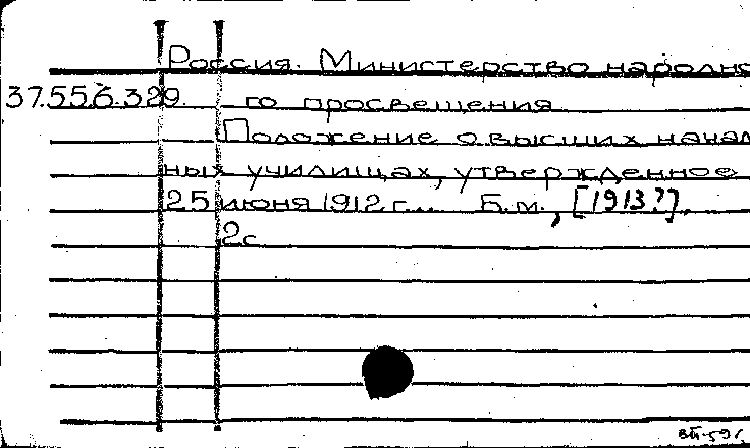 Россия. Министерство народно
37.556.329. го просвещения
Положение о высших началь
ных училищах, утвержденное
25 июня 1912 г... Б.м., [1913?].
2с